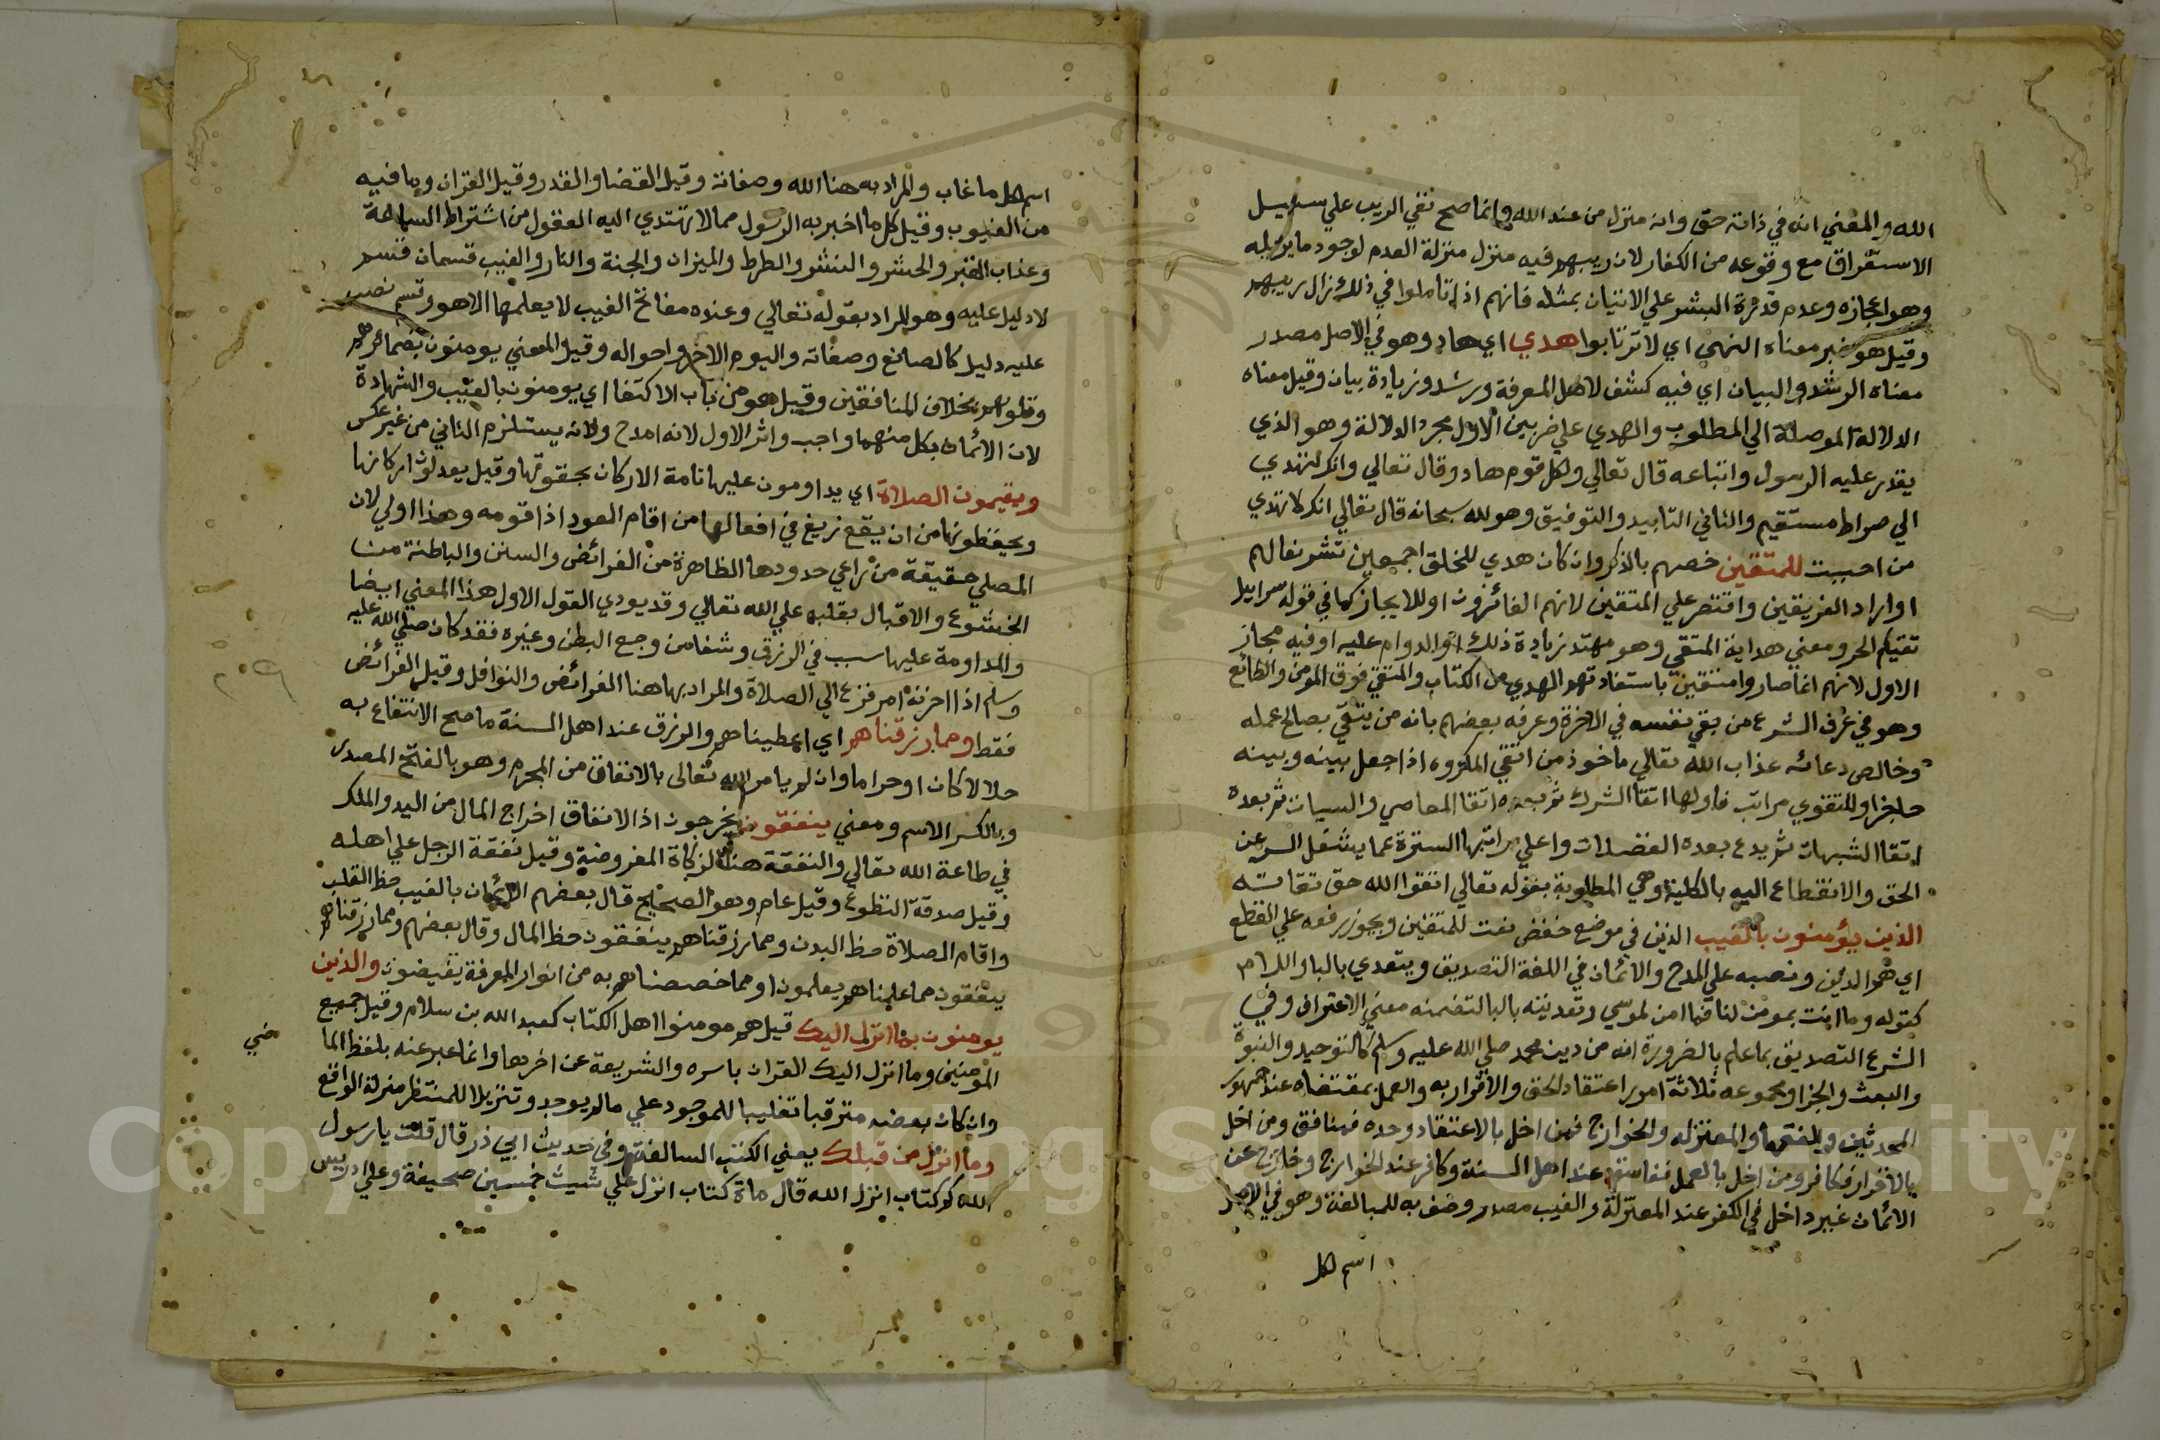 الله والمعني انه في ذاته حق وانه منزل من عند الله وانما صح نفي الريب علي سبيل
الاستغراق مع وقوعه من الكفار لان ريبهم فيه منزل منزلة العدم لوجود ما يزيله
وهو اعجازه وعدم قدرة البشر علي الاتيان بمثله فانهم اذا تاملوا في ذلك زال ريبهم
وقيل هو خبر معناه النهي اي لا ترتابوا هدي اي هاد وهو في الاصل مصدر
معناه الرشد والبيان اي فيه كشف لاهل المعرفة ورشد وزيادة بيان وقيل معناه
الدلالة الموصلة الي المطلوب والهدي علي ضربين الاول مجرد الدلالة وهو الذي
يقدر عليه الرسول واتباعه قال تعالي ولكل قوم هاد وقال تعالي وانك لتهدي
الي صراط مستقيم والثاني التاييد والتوفيق وهو لله سبحانه قال تعالي انك لا تهدي
من احببت للمتقين خصهم بالذكر وان كان هدي للخلق اجمعين تشريفا لهم
او اراد الفريقين واقتصر علي المتقين لانهم الفائزون او للايجاز كما في قوله سرابيل
تقيكم الحر ومعني هداية المتقي وهو مهتد زيادة ذلك او الدوام عليه او فيه مجاز
الاول لانهم انما صاروا متقين باستفادتهم الهدي من الكتاب والمتقي فوق المومن والطائع
وهو في عرف الشرع من يقي نفسه في الاخرة وعرفه بعضهم بانه من يتقي بصالح عمله
وخالص دعائه عذاب الله تعالي ماخوذ من اتقي المكروه اذا جعل بينه وبينه
حاجزا وللتقوي مراتب فاولها اتقا الشرك ثم بعده اتقا المعاصي والسيات ثم بعده
اتقا الشبهات ثم يدع بعده الفضلات واعلي مراتبها السترة عما يشغل السر عن
الحق والانقطاع اليه بالكلية وهي المطلوبة بقوله تعالي اتقوا الله حق تقاته
الذين يؤمنون بالغيب الذين في موضع خفض نعت للمتقين ويجوز رفعه علي القطع
اي هم الذين ونصبه علي المدح والائمان في اللغة التصديق ويتعدي بالبا واللام
كقوله وما انت بمومن لنا فما امن لموسي وتعديته بالبا لتضمنه معني الاعتراف وفي
الشرع التصديق بما علم بالضرورة انه من دين محمد صلي الله عليه وسلم كالتوحيد والنبوة
والبعث والجزا ومجموعه ثلاثة امور اعتقاد الحق والاقرار به والعمل بمقتضاه عند جمهور
المحدثين والفقها والمعتزله والخوارج فمن اخل بالاعتقاد وحده فمنافق ومن اخل
بالاقرار فكافر ومن اخل بالعمل ففاسق عند اهل السنة وكافر عند الخوارج وخارج عن
الائمان غير داخل في الكفر عند المعتزلة والغيب مصدر وصف به للمبالغة وهو في الاصل
اسم لكل
اسم لكل ما غاب والمراد به هنا الله وصفاته وقيل القضا والقدر وقيل القران وما فيه
من الغيوب وقيل كل ما اخبر به الرسول مما لا تهتدي اليه العقول من اشتراط الساعة
وعذاب القبر والحشر والنشر والصراط والميزان والجنة والنار والغيب قسمان قسم
لا دليل عليه وهو المراد بقوله تعالي وعنده مفاتح الغيب لا يعلمها الا هو وقسم نصب
عليه دليل كالصانع وصفاته واليوم الاخر واحواله وقيل المعني يومنون بضمائرهم
وقلوبهم بخلاف المنافقين وقيل هو من باب الاكتفا اي يومنون بالغيب والشهادة
لان الائمان بكل منهما واجب واثر الاول لانه امدح ولانه يستلزم الثاني من غير عكس
ويقيمون الصلاة اي يداومون عليها تامة الاركان بحقوقها وقيل يعدلون اركانها
ويحفظونها من ان يقع زيغ في افعالها من اقام العود اذا قومه وهذا اولي لان
المصلي حقيقة من راعي حدودها الظاهرة من الفرائض والسنن والباطنة من
الخشوع والاقبال بقلبه علي الله تعالي وقد يودي القول الاول هذا المعني ايضا
والمداومة عليها سبب في الرزق وشفا من وجع البطن وغيره فقد كان صلي الله عليه
وسلم اذا احزنه امر فزع الي الصلاة والمراد بها هنا الفرائض والنوافل وقيل الفرائض
فقط ومما رزقناهم اي اعطيناهم والرزق عند اهل السنة ما صح الانتفاع به
حلالا كان او حراما وان لم يامر الله تعالى بالانفاق من المحرم وهو بالفتح المصدر
وبالكسر الاسم ومعني ينفقون يخرجون اذ الانفاق اخراج المال من اليد والملك
في طاعة الله تعالي والنفقة هنا الزكاة المفروضة وقيل نفقة الرجل علي اهله
وقيل صدقة التطوع وقيل عام وهو الصحيح قال بعضهم الائمان بالغيب حظ القلب
واقام الصلاة حظ البدن ومما رزقناهم ينفقون حظ المال وقال بعضهم ومما رزقناهم
ينفقون مما علمناهم يعلمون او مما خصصناهم به من انوار المعرفة يفيضون والذين
يومنون بما انزل اليك قيل هم مومنوا اهل الكتاب كعبد الله بن سلام وقيل جميع
المومنين وما انزل اليك القران باسره والشريعة عن اخرها وانما عبر عنه بلفظ الما
ضي
وان كان بعضه مترقبا تغليبا للموجود علي ما لم يوجد وتنزيلا للمنتظر منزلة الواقع
وما انزل من قبلك يعني الكتب السالفة وفي حديث ابي ذر قال قلت يا رسول
الله كم كتاب انزل الله قال ماة كتاب انزل علي شيث خمسين صحيفة وعلي ادريس
Copy
King
Sity